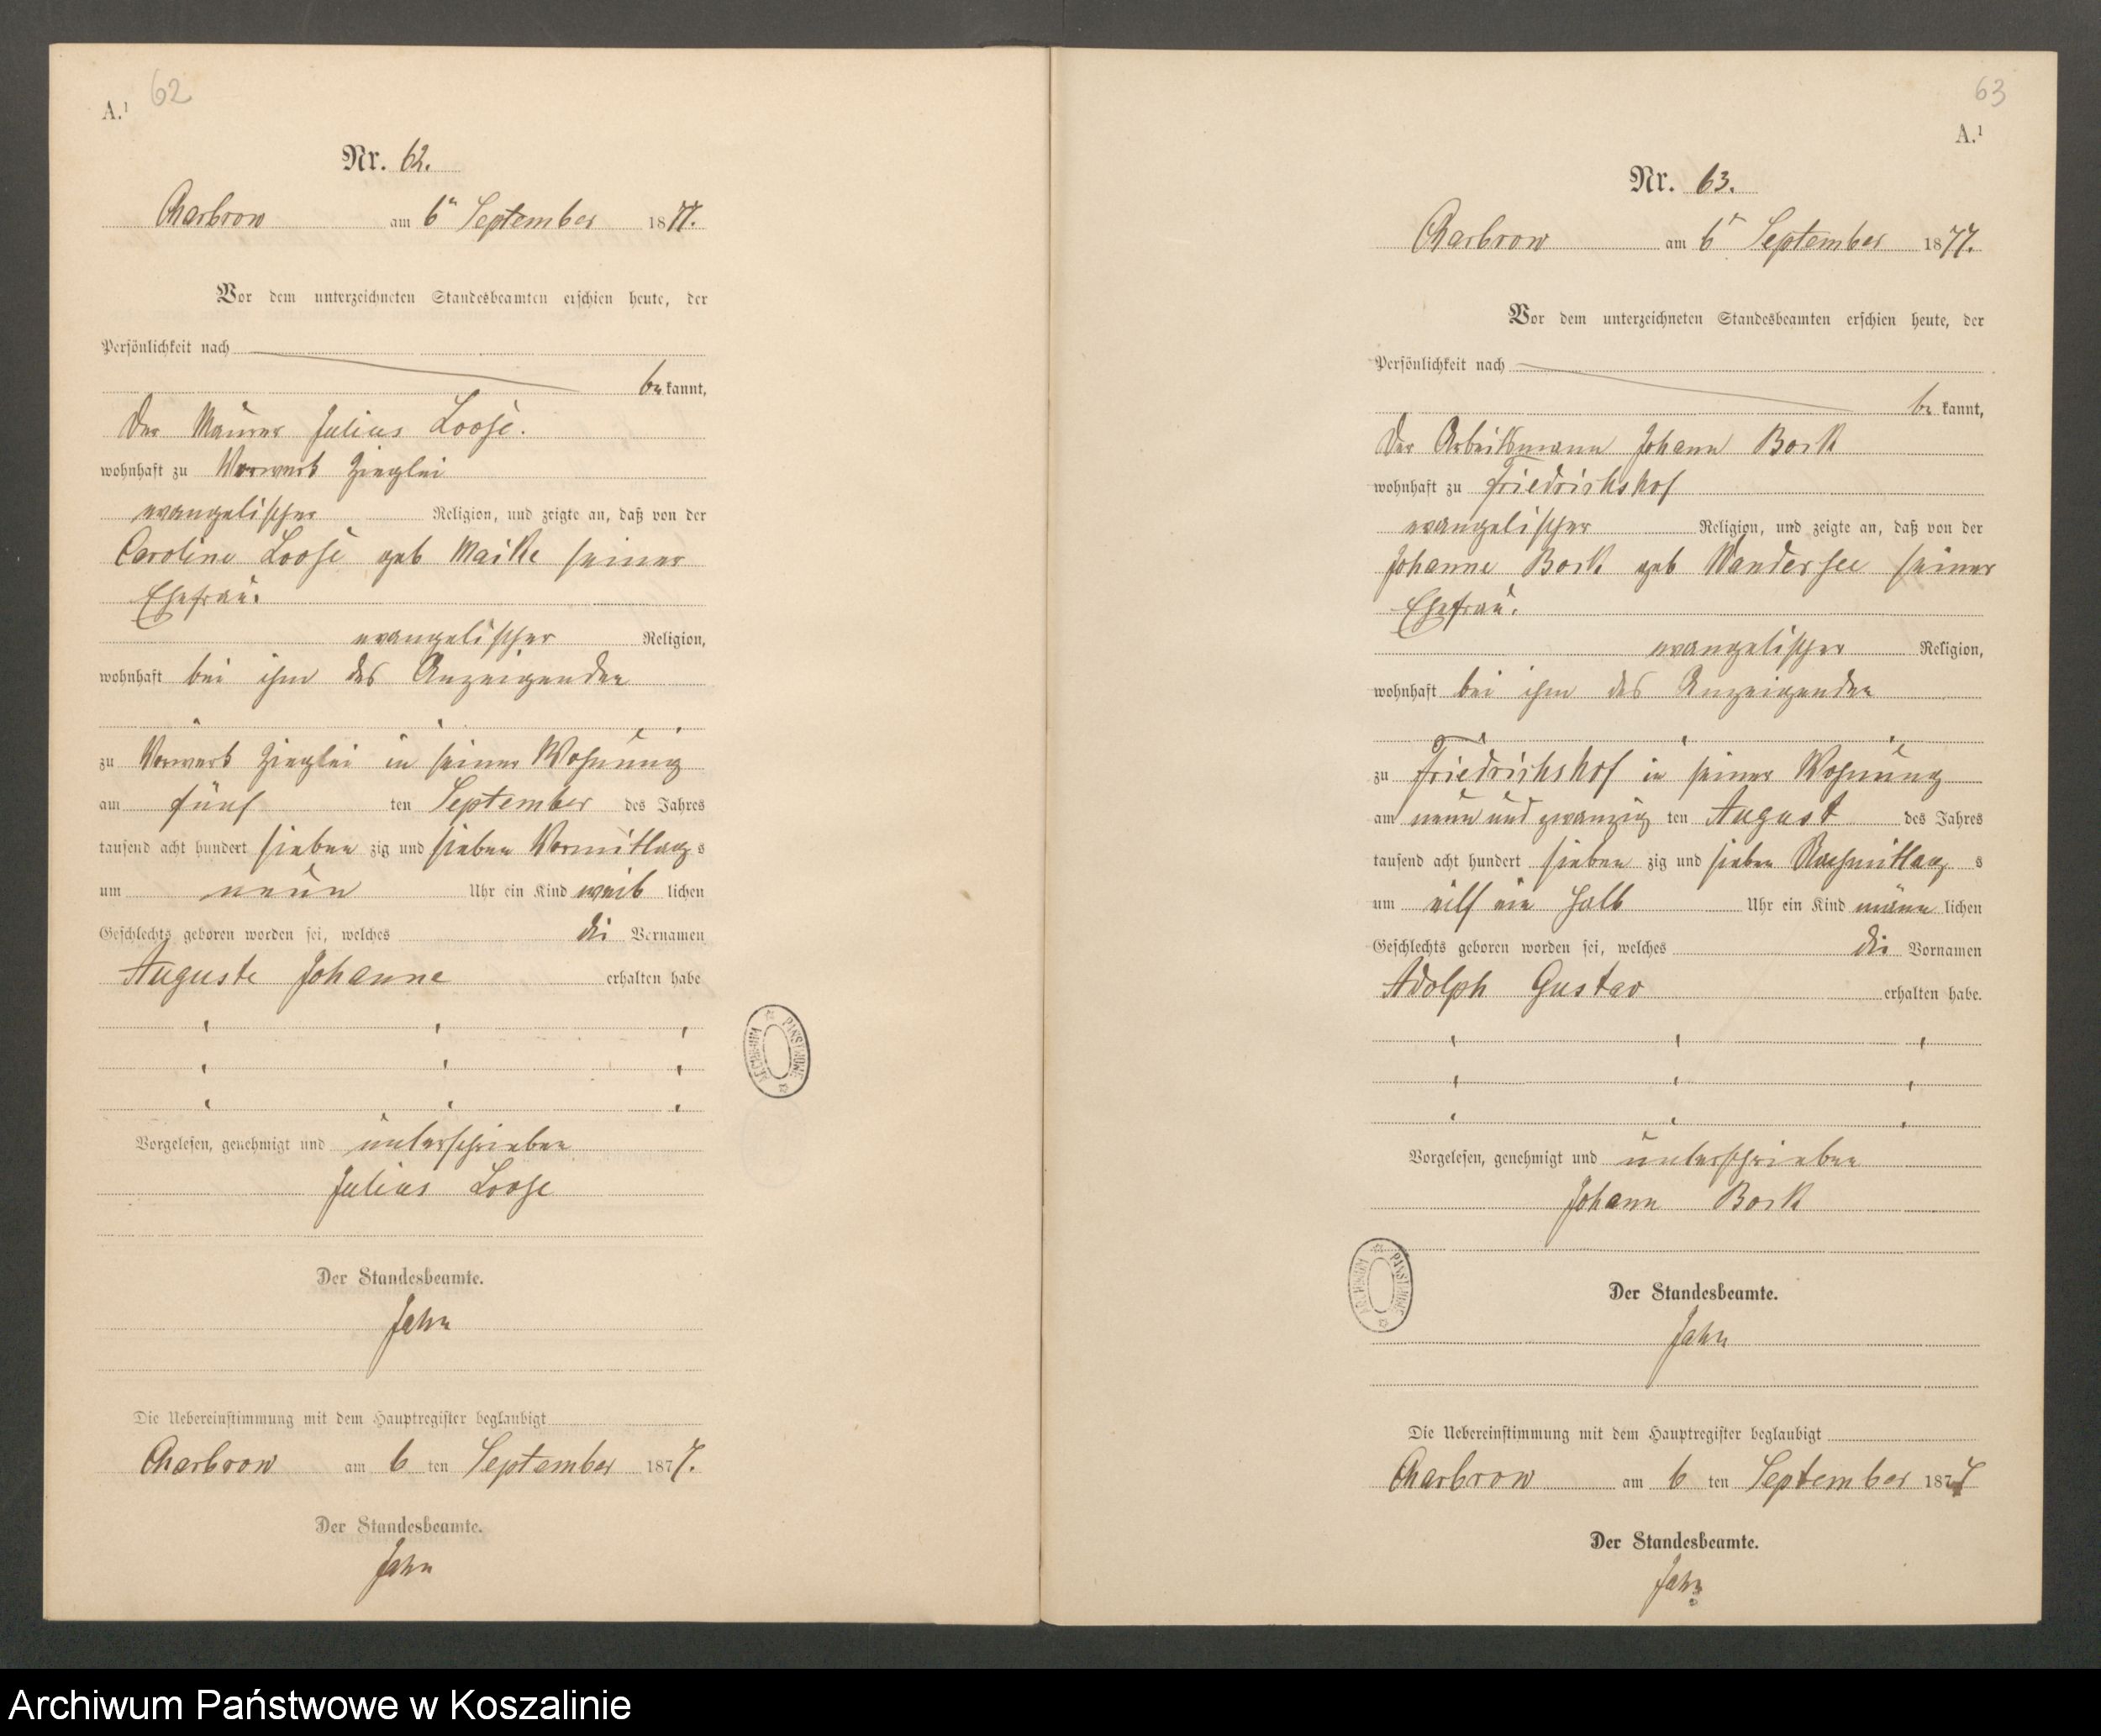 62
A.¹
Nr. 62.
Charbrow am 6ⁿ September 1877.
Vor dem unterzeichneten Standesbeamten erschien heute, der
Persönlichkeit nach
be kannt,
der Maurer Julius Loose.
wohnhaft zu Vorwerk Zieglei
evangelischer Religion, und zeigte an, daß von der
Caroline Loose geb Maike seiner
Ehefrau.
evangelischer Religion,
wohnhaft bei ihm des Anzeigenden
zu Vorwerk Zieglei in seiner Wohnung
am fünf ten September des Jahres
tausend acht hundert sieben zig und sieben Vormittag s
um neun Uhr ein Kind weib lichen
Geschlechts geboren worden sei, welches die Vornamen
Auguste Johanne erhalten habe
Vorgelesen, genehmigt und unterschrieben
Julius Loose
Der Standesbeamte.
Jahn
Die Uebereinstimmung mit dem Hauptregister beglaubigt
Charbrow am 6 ten September 1877.
Der Standesbeamte.
Jahn
ARCHIWUM PAŃSTWOWE
63
A.¹
Nr. 63.
Charbrow am 6ⁿ September 1877.
Vor dem unterzeichneten Standesbeamten erschien heute, der
Persönlichkeit nach
be kannt,
der Arbeitsmann Johann Bork
wohnhaft zu Friedrichshof
evangelischer Religion, und zeigte an, daß von der
Johanne Bork geb Wandersee seiner
Ehefrau.
evangelischer Religion,
wohnhaft bei ihm des Anzeigenden
zu Friedrichshof in seiner Wohnung
am neun und zwanzig ten August des Jahres
tausend acht hundert sieben zig und sieben Nachmittag s
um eilf ein halb Uhr ein Kind männ lichen
Geschlechts geboren worden sei, welches die Vornamen
Adolph Gustav erhalten habe.
Vorgelesen, genehmigt und unterschrieben
Johann Bork
ARCHIWUM PAŃSTWOWE
Der Standesbeamte.
Jahn
Die Uebereinstimmung mit dem Hauptregister beglaubigt
Charbrow am 6 ten September 1877
Der Standesbeamte.
Jahn
Archiwum Państwowe w Koszalinie